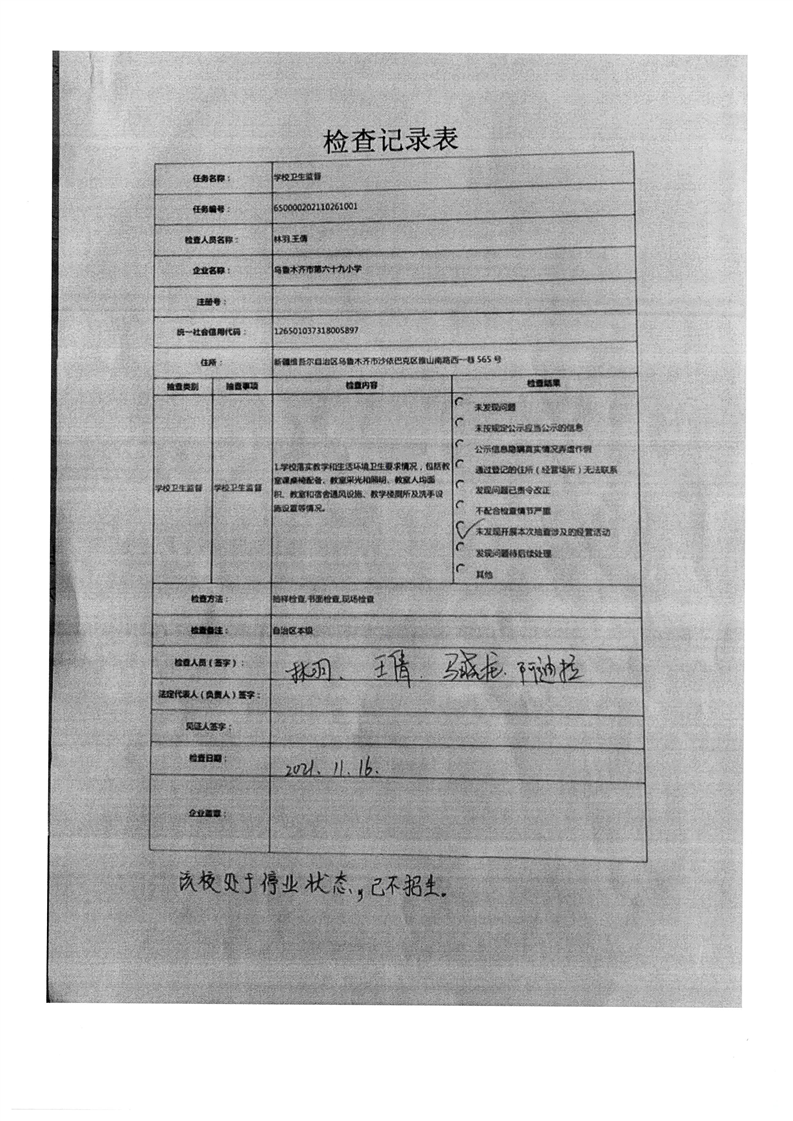 检查记录表
任务名称： 学校卫生监督
任务编号： 650000202110261001
检查人员名称： 林羽,王倩
企业名称： 乌鲁木齐市第六十九小学
注册号：
统一社会信用代码： 126501037318005897
住所： 新疆维吾尔自治区乌鲁木齐市沙依巴克区雅山南路西一巷 565 号
抽查类别 抽查事项 检查内容 检查结果
学校卫生监督 学校卫生监督
1.学校落实教学和生活环境卫生要求情况，包括教
室课桌椅配备、教室采光和照明、教室人均面
积、教室和宿舍通风设施、教学楼厕所及洗手设
施设置等情况。
未发现问题
未按规定公示应当公示的信息
公示信息隐瞒真实情况弄虚作假
通过登记的住所（经营场所）无法联系
发现问题已责令改正
不配合检查情节严重
未发现开展本次抽查涉及的经营活动
发现问题待后续处理
其他
检查方法： 抽样检查,书面检查,现场检查
检查备注： 自治区本级
检查人员（签字）： 林羽、王倩、 阿迪拉
法定代表人（负责人）签字：
见证人签字：
检查日期： 2021.11.16.
企业盖章：
该校处于停业状态，已不招生。